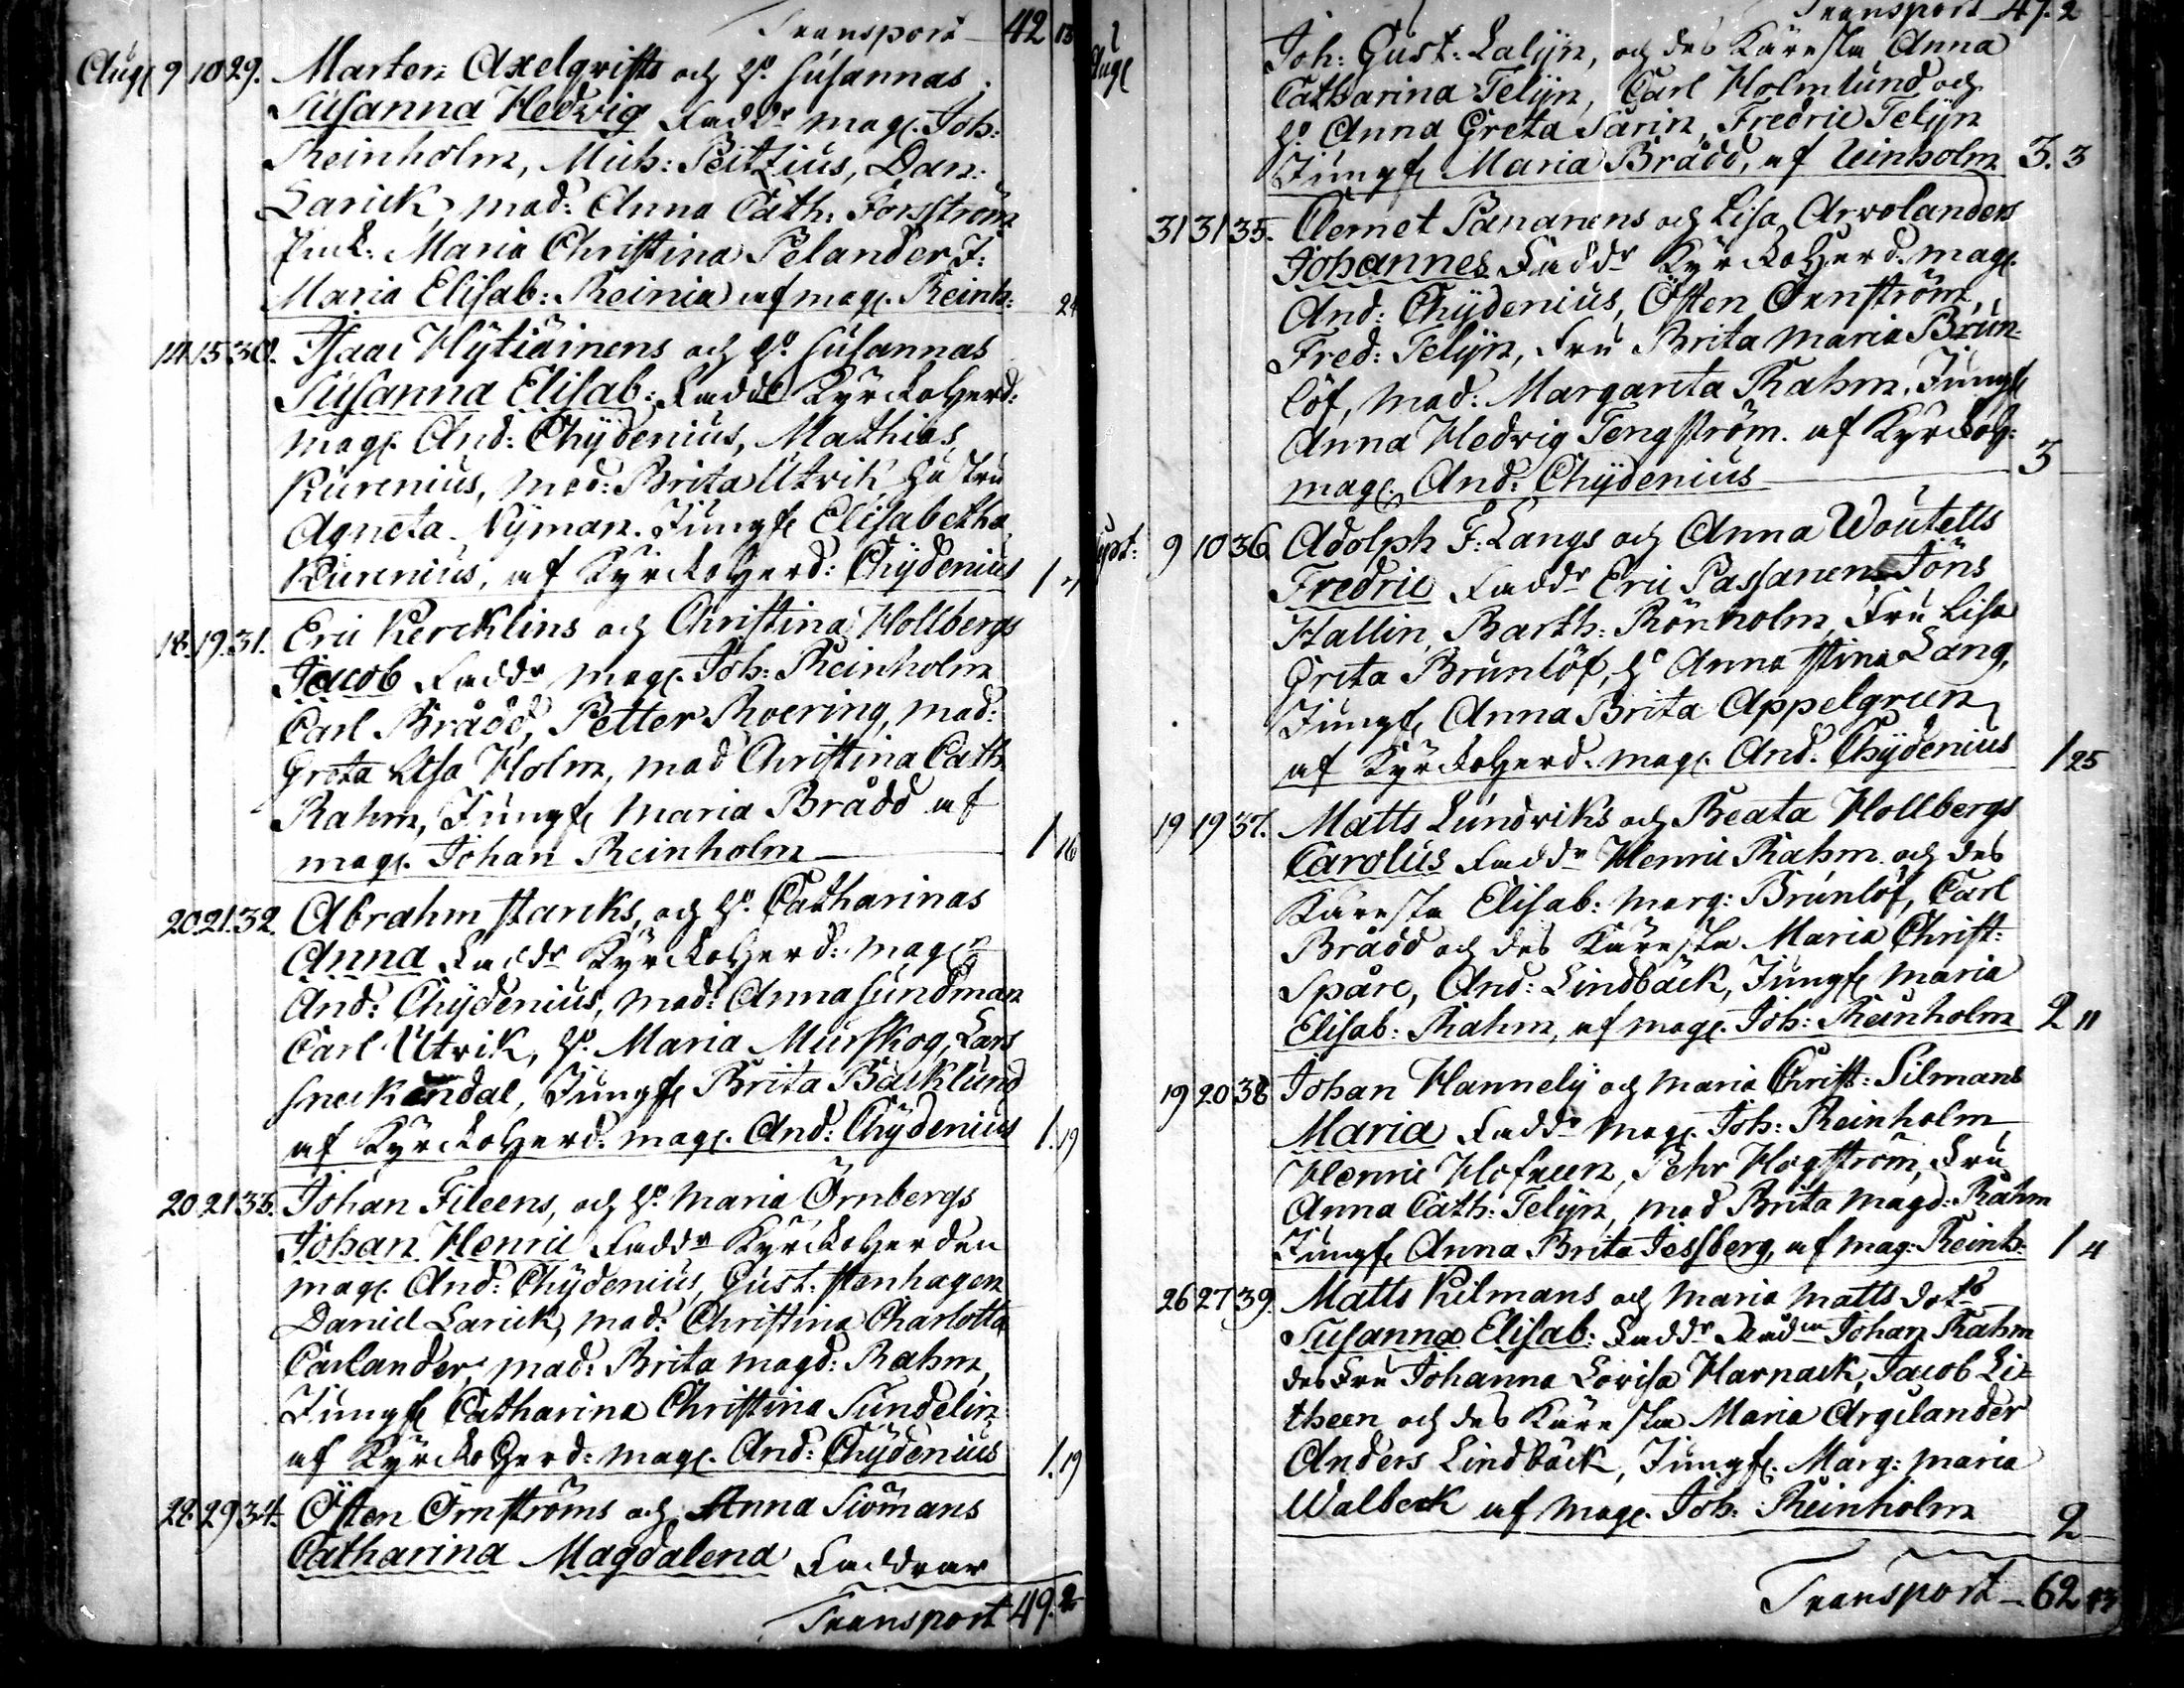 Transport 42 13
Aug. 9 10 29. Marten Axelqvists och H. Susannas
Susanna Hedvig Faddr mag. Joh:
Reinholm, Mich: Peitzius, Dan:
Larick, mad: Anna Cath: Forsström
Maria Christina Pelander J:
Maria Elisab: Reinia af mag. Reinh: 24
14 15 30. Isaac Hytiäinens och H. Susannas
Susanna Elisab: Faddr KyrckoHerd:
mag. And: Chydenius, Mathias
Kurenius, mad: Brita Utrik Hustru
Agneta Nyman. Jungf. Elisabetha
Kurenius, af KyrckoHerd: Chydenius
18. 19. 31. Eric Kercklins och Christina Hollbergs
Jacob Faddr mag. Joh: Reinholm
Carl Brådd, Petter Roering, mad:
Greta Lisa Holm, mad Christina Cath:
Rahm, Jungf. Maria Brådd af
mag. Johan Reinholm 1 16
20. 21. 32. Abrahm Starcks, och H. Catharinas
Anna Faddr KyrckoHerd: mag.
And: Chydenius, mad: Anna Sundman
Carl Utrik, H. Maria Murskog, Lars
Sneckendal, Jungf. Brita Bäcklund
af KyrckoHerd: mag. And: Chydenius 1. 19
20 21 33. Johan Fileens, och H. Maria Örnbergs
Johan Henric Faddr KyrckoHerden
mag. And: Chydenius, Gust: Stenhagen
Daniel Larick, mad: Christina Charlotta
Carlander, mad: Brita Magd: Rahm,
Jungf. Catharina Christina Sundelin
af KyrckoHerd: mag. And: Chydenius 1. 19
29 34. Östen Örnströms och Anna Siömans
Catharina Magdalena Faddrar
Transport 49. 2
Transport 49. 2
Aug. Joh: Gust: Lalijn, och des Käresta Anna
Catharina Telijn, Carl Holmlund och
H. Anna Greta Sarin, Fredric Telijn
Jungf. Maria Brådd, af Reinholm 3. 3
31 31 35. Clemet Pananens och Lisa Arvolanders
Johannes Faddr KyrckoHerd. mag.
And: Chydenius, Östen Örnström,
Fred: Telijn, Fru Brita Maria Brun-
löf, mad: Margareta Rahm. Jungf.
Anna Hedvig Tengström. af KyrckoH:
mag. And: Chydenius 3
9 10 36. Adolph F: Langs och Anna Woutells
Fredric Faddr Eric Passanen, Jöns
Hallin, Barth: Rönholm, Fru Lisa
Greta Brunlöf, H. Anna Stina Lang,
Jungf. Anna Brita Appelgreen
af KyrckoHerd. mag. And. Chydenius 1 25
19 19 37. Matts Lundviks och Beata Hollbergs
Carolus Faddr Henric Rahm och des
Käresta Elisab: Marg: Brunlöf, Carl
Brådd och des Käresta Maria Christ:
Spåre, And: Lindbäck, Jungf. Maria
Elisab: Rahm, af mag. Joh: Reinholm 2 11
19 20 38 Johan Hannely och Maria Christ: Silmans
Maria Faddr mag. Joh: Reinholm
Henric Hofreen, Pehr Högström, Fru
Anna Cath: Telijn, mad Brita Magd: Rahm
Jungf. Anna Brita Jessberg, af mag: Reinh: 1 4
26 27 39. Matts Kilmans och Maria Matts dotr
Susanna Elisab: Faddr Rådm Johan Rahm
des Fru Johanna Lovisa Harnack, Jacob Li-
theen och des Käresta Maria Argelander
Anders Lindbäck, Jungf. Marg: Maria
Walbeck af mag. Joh: Reinholm 2
Transport 62 13